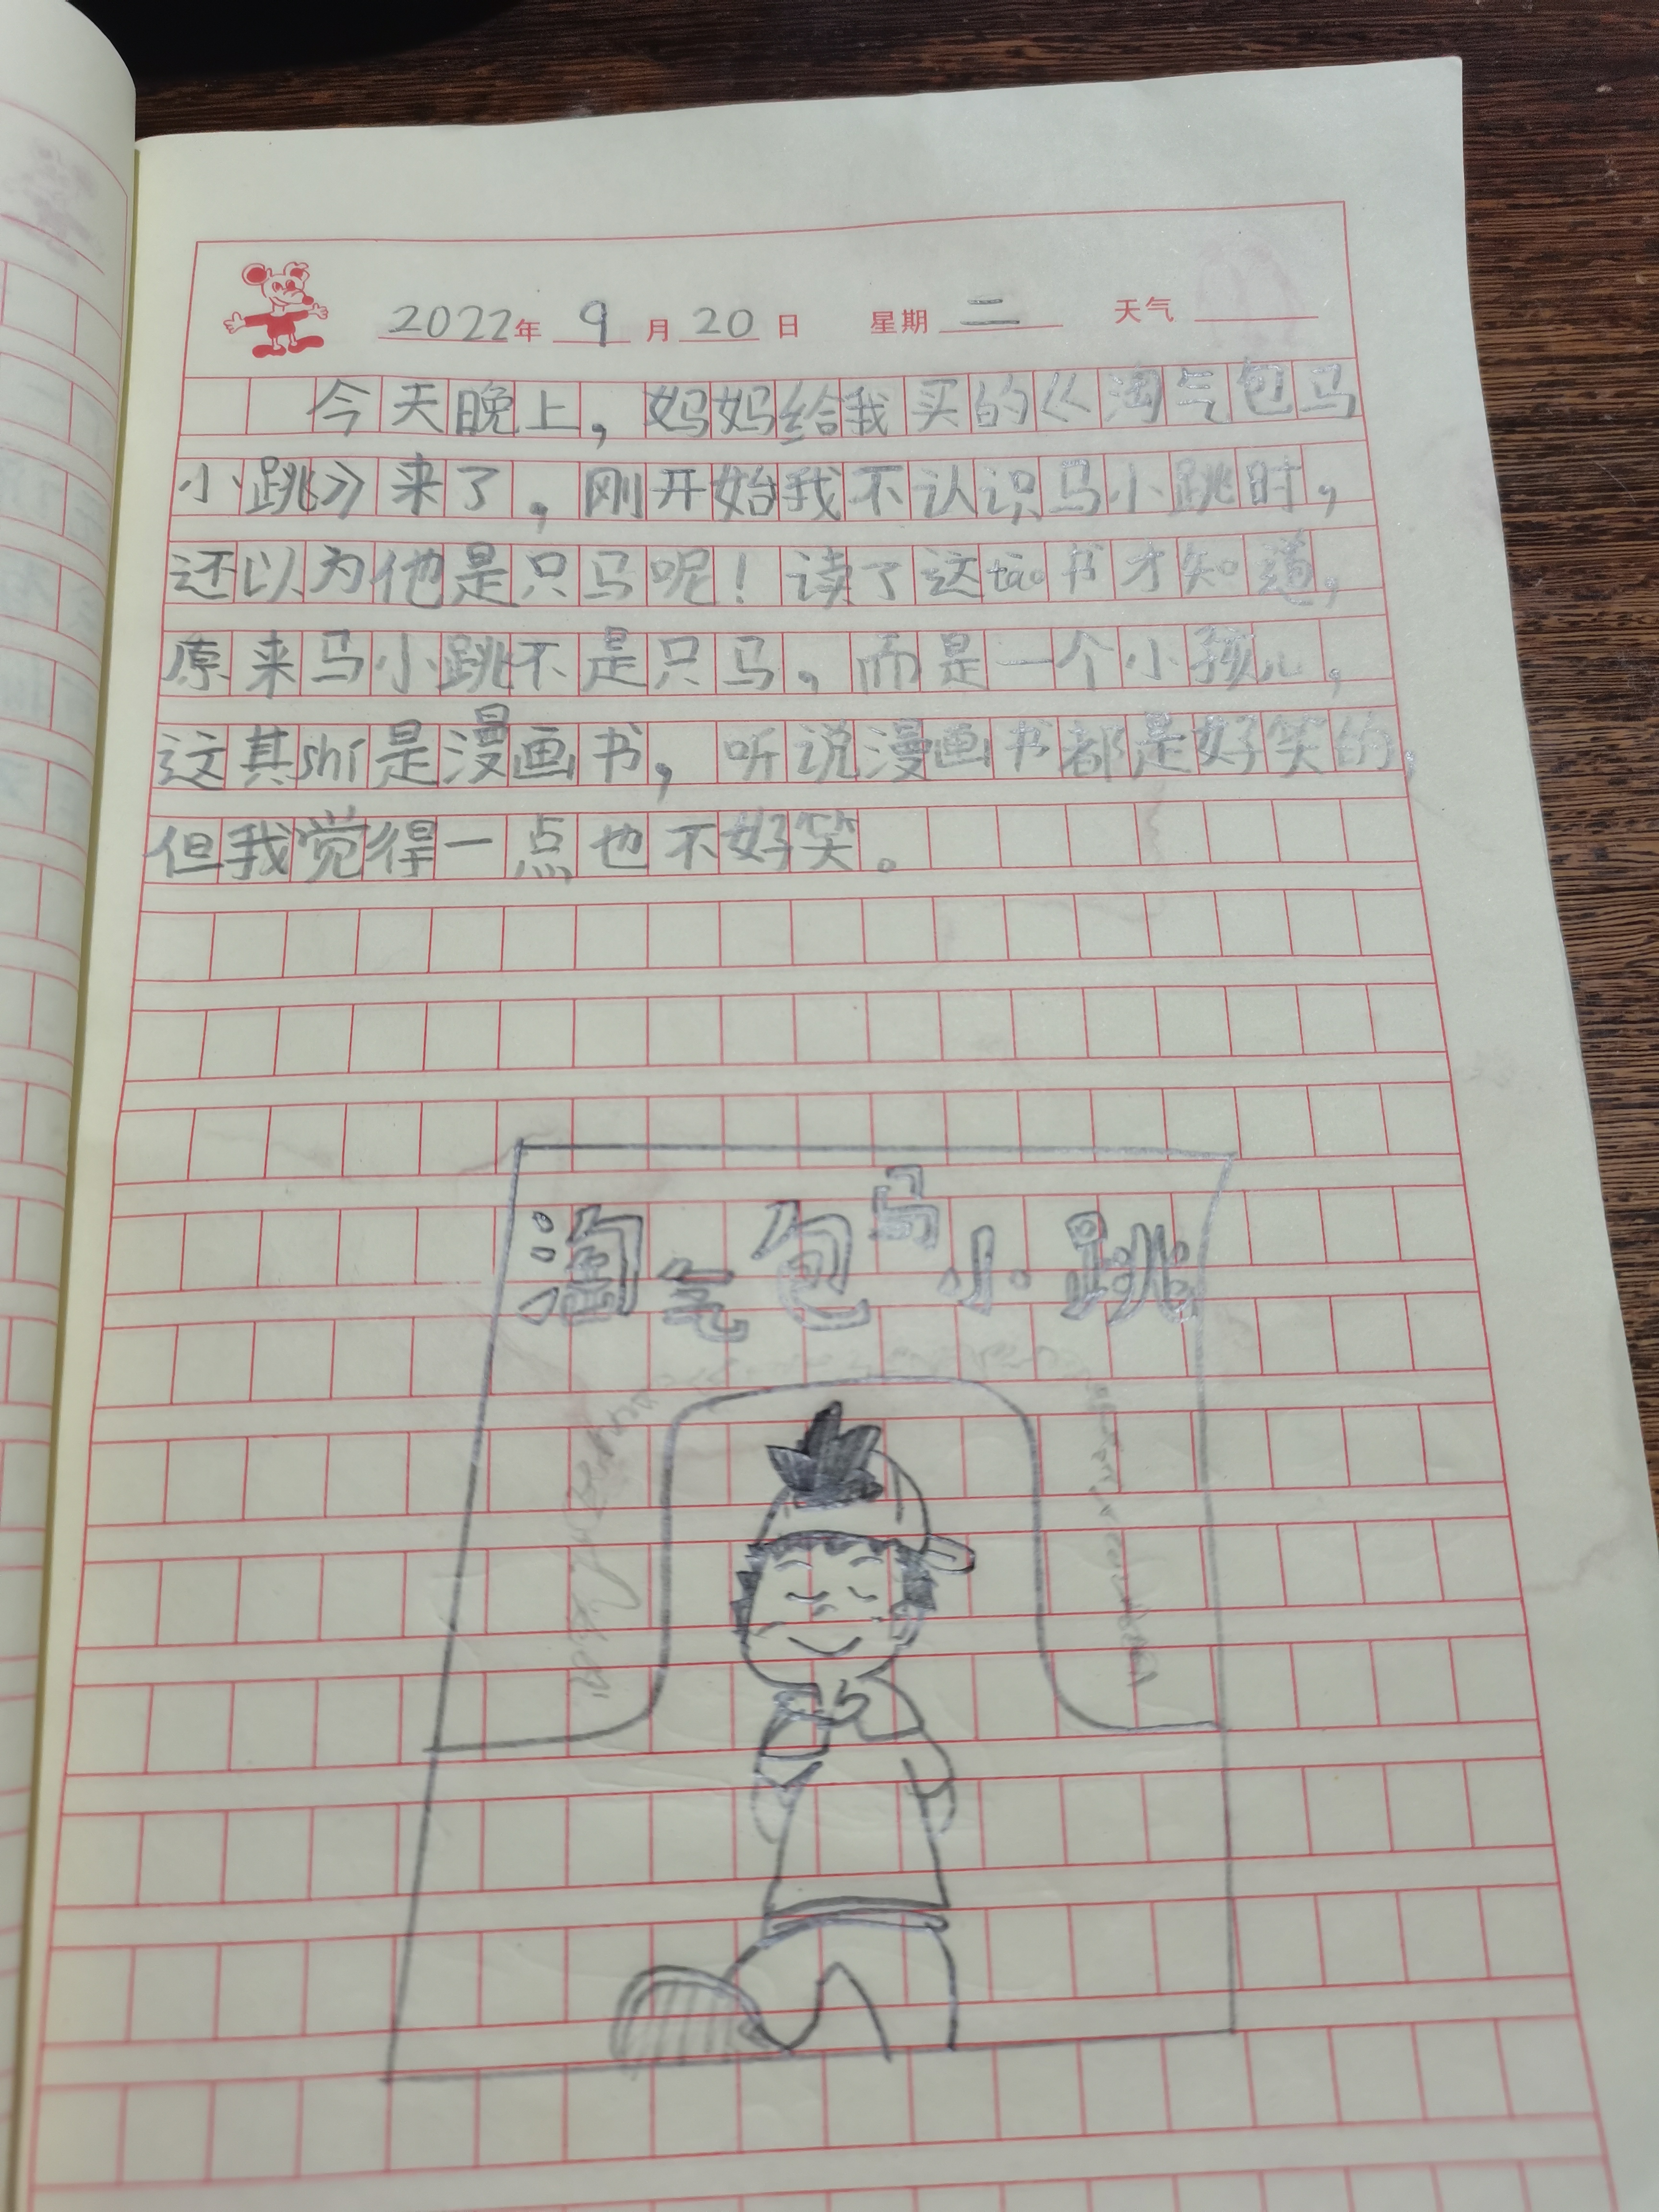 2022年 9月20日 星期二 天气
今天晚上，妈妈给我买的《淘气包马
小跳》来了，刚开始我不认识马小跳时，
还以为他是只马呢！读了这tào书才知道，
原来马小跳不是只马，而是一个小孩儿，
这其shí是漫画书，听说漫画书都是好笑的，
但我觉得一点也不好笑。
淘气包马小跳